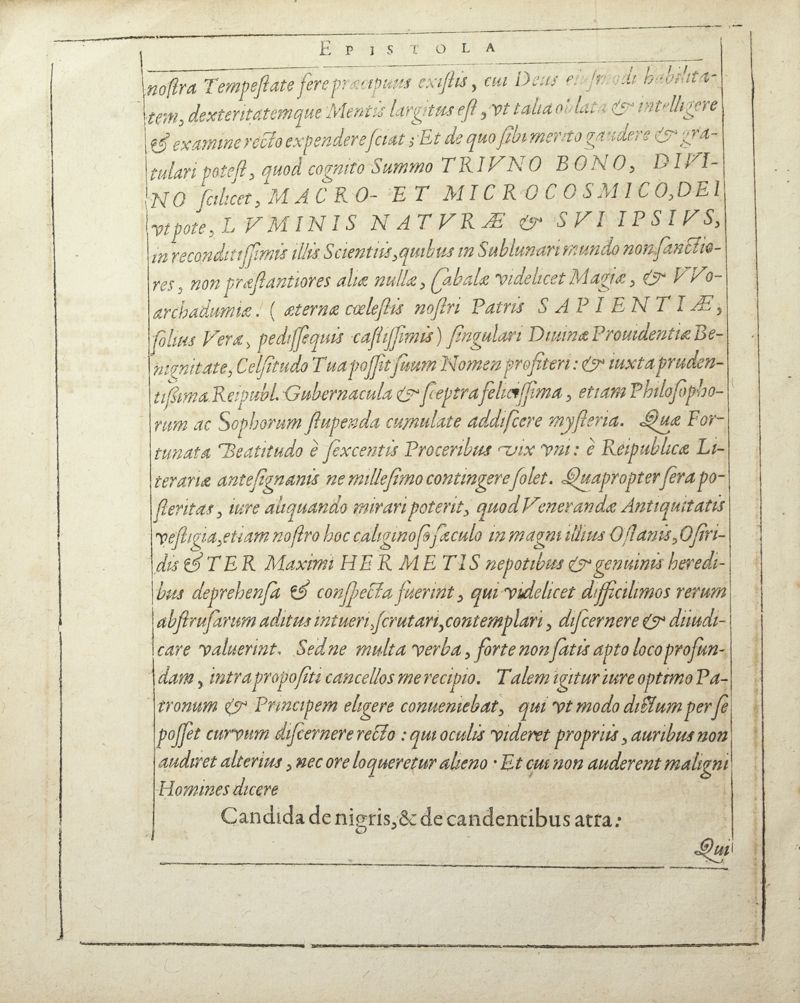 EPISTOLA
noſtra Tempeſtate fere præcipuus exiſtis, cui Deus eiuſmodi habilita-
tem, dexteritatemque Mentis largitus eſt, vt talia oblata & intelligere
& examine recto expendere ſciat; Et de quo ſibi merito gaudere & gra-
tulari poteſt, quod cognito Summo TRIVNO BONO, DIVI-
NO ſcilicet, MACRO- ET MICROCOSMICO, DEI
vtpote, LVMINIS NATVRÆ & SVI IPSIVS,
in reconditiſſimis illis Scientiis, quibus in Sublunari mundo non ſanctio-
res, non præſtantiores aliæ nullæ, Cabalæ videlicet Magiæ, & VVo-
archadumiæ. ( æternæ cœleſtis noſtri Patris SAPIENTIÆ,
ſolius Veræ, pediſſequis caſtiſſimis) ſingulari Diuinæ Prouidentiæ Be-
nignitate, Celſitudo Tua poſſit ſuum Nomen profiteri: & iuxta pruden-
tiſsima Reipubl. Gubernacula & ſceptra feliciſſima, etiam Philoſopho-
rum ac Sophorum ſtupenda cumulate addiſcere myſteria. Quæ For-
tunata Beatitudo è ſexcentis Proceribus vix vni: è Reipublicæ Li-
terariæ anteſignanis ne milleſimo contingere ſolet. Quapropter ſera po-
ſteritas, iure aliquando mirari poterit, quod Venerandæ Antiquitatis
veſtigia, etiam noſtro hoc caliginoſo ſæculo in magni illius Oſtanis, Oſiri-
dis & TER Maximi HERMETIS nepotibus & genuinis heredi-
bus deprehenſa & conſpecta fuerint, qui videlicet difficilimos rerum
abſtruſarum aditus intueri, ſcrutari, contemplari, diſcernere & diiudi-
care valuerint. Sed ne multa verba, forte non ſatis apto loco profun-
dam, intra propoſiti cancellos me recipio. Talem igitur iure optimo Pa-
tronum & Principem eligere conueniebat, qui vt modo dictum per ſe
poſſet curvum diſcernere recto : qui oculis videret propriis, auribus non
audiret alterius, nec ore loqueretur alieno · Et cui non auderent maligni
Homines dicere
Candida de nigris, & de candentibus atra:
Qui